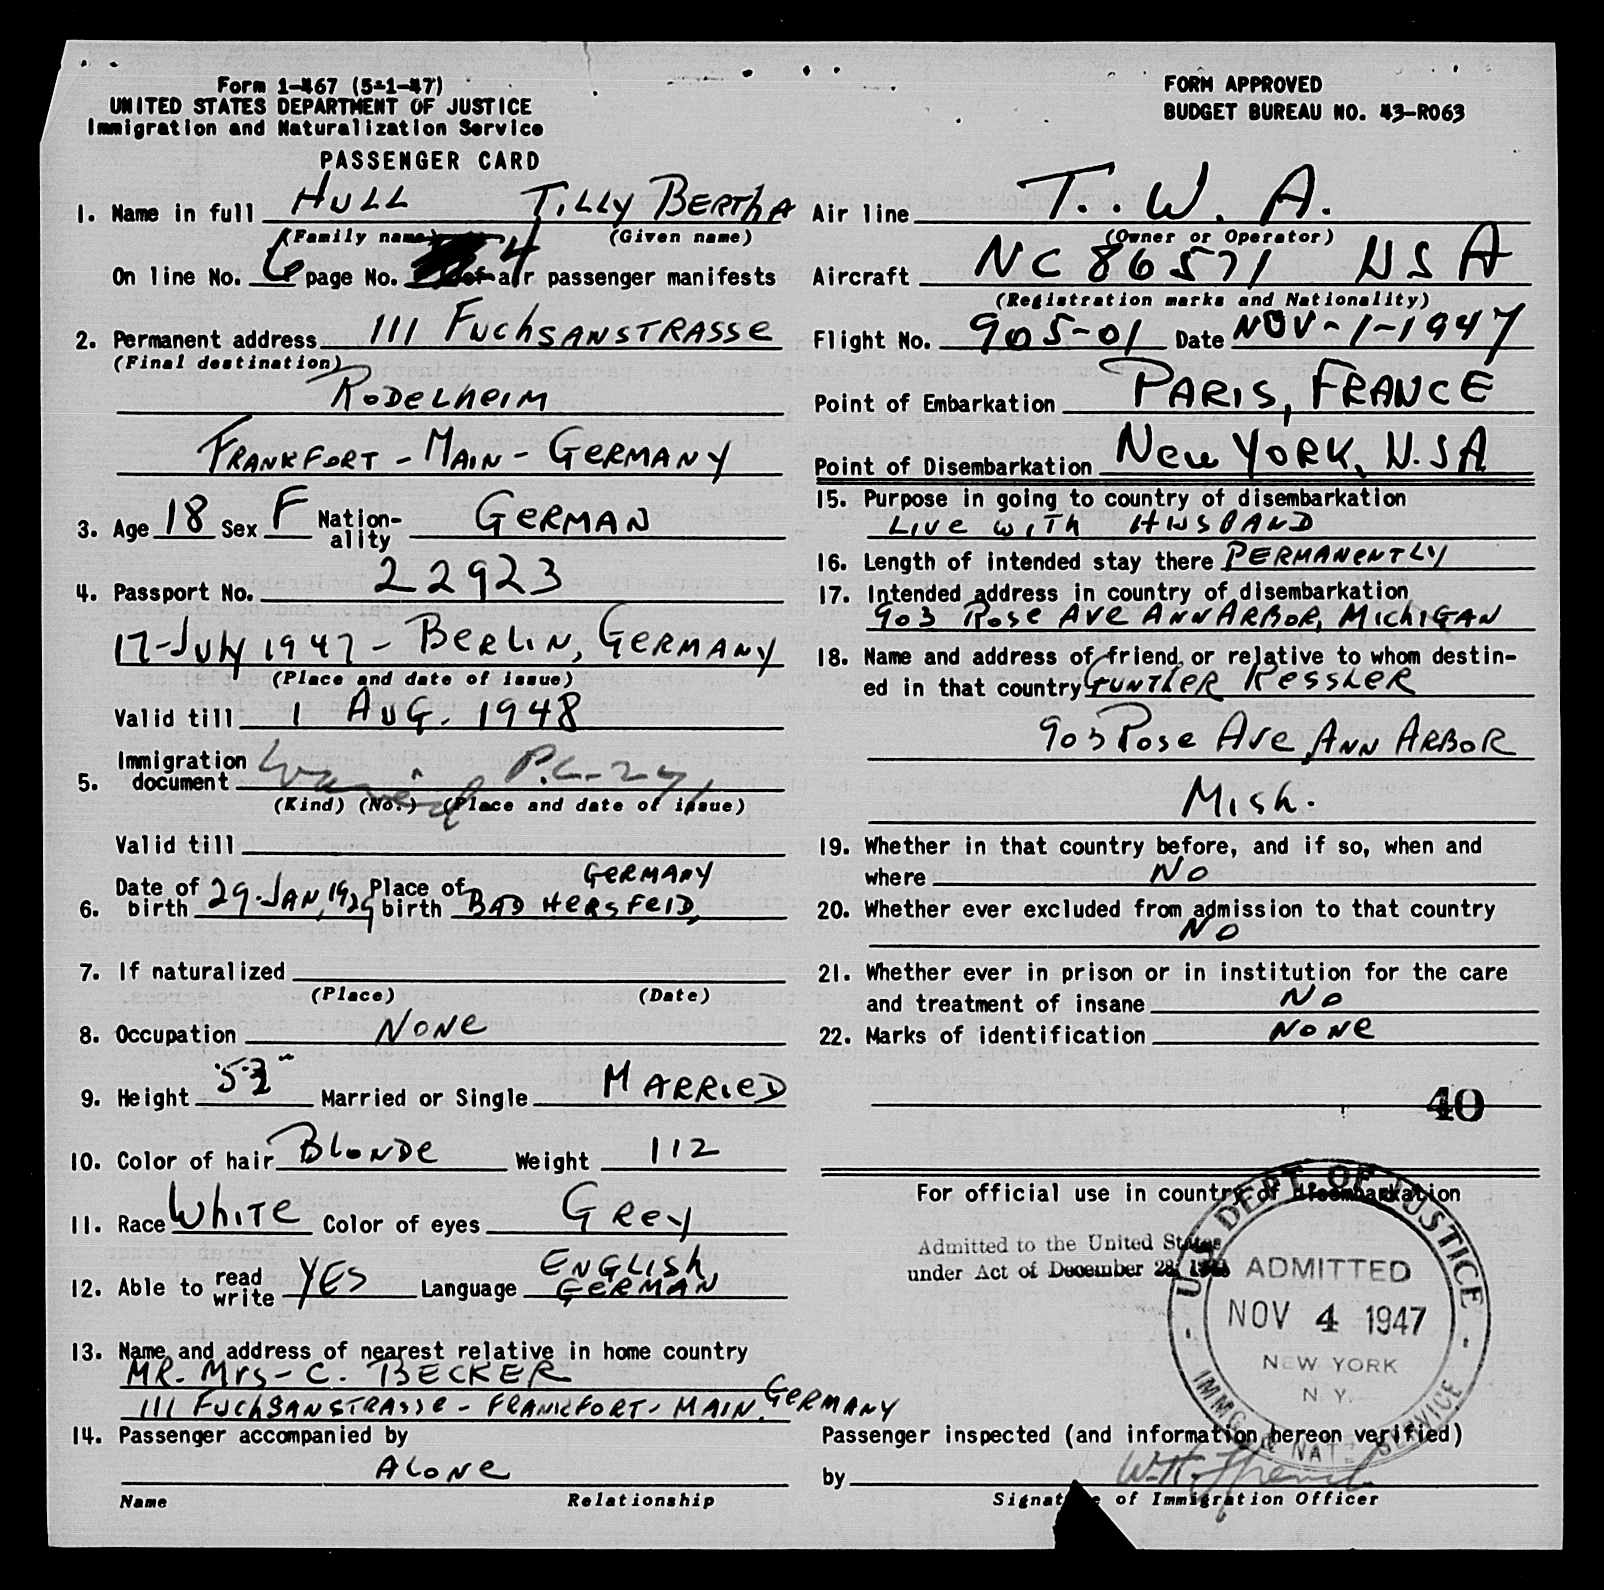 Form 1-467 (5-1-47)
UNITED STATES DEPARTMENT OF JUSTICE
Immigration and Naturalization Service
PASSENGER CARD
FORM APPROVED
BUDGET BUREAU NO. 43-R063
1. Name in full HULL TILLY BERTHA
(Family name) (Given name)
On line No. 6 page No. 4 of air passenger manifests
2. Permanent address 111 FUCHSANSTRASSE
(Final destination)
RODELHEIM
FRANKFORT - MAIN - GERMANY
3. Age 18 Sex F Nation-ality GERMAN
4. Passport No. 22923
17-July 1947 - BERLIN, GERMANY
(Place and date of issue)
Valid till 1 AUG. 1948
5. Immigration document Waived P.L-271
(Kind) (No.) (Place and date of issue)
Valid till
6. Date of birth 29-JAN, 1929 Place of birth BAD HERSFELD, GERMANY
7. If naturalized
(Place) (Date)
8. Occupation NONE
9. Height 5-3 Married or Single MARRIED
10. Color of hair BLONDE Weight 112
11. Race WHITE Color of eyes GREY
12. Able to read write YES Language ENGLISH GERMAN
13. Name and address of nearest relative in home country
MR. MRS- C. BECKER
111 FUCHSANSTRASSE - FRANKFORT - MAIN, GERMANY
14. Passenger accompanied by
ALONE
Name Relationship
Air line T.W.A.
(Owner or Operator)
Aircraft NC 86571 USA
(Registration marks and Nationality)
Flight No. 905-01 Date NOV-1-1947
Point of Embarkation PARIS, FRANCE
Point of Disembarkation NEW YORK, U.SA
15. Purpose in going to country of disembarkation
LIVE WITH HUSBAND
16. Length of intended stay there PERMANENTLY
17. Intended address in country of disembarkation
903 ROSE AVE ANN ARBOR, MICHIGAN
18. Name and address of friend or relative to whom destin-
ed in that country GUNTHER KESSLER
903 ROSE AVE ANN ARBOR
MISH.
19. Whether in that country before, and if so, when and
where NO
20. Whether ever excluded from admission to that country
NO
21. Whether ever in prison or in institution for the care
and treatment of insane NO
22. Marks of identification NONE
40
For official use in country of disembarkation
Admitted to the United States
under Act of December 28,
U.S. DEPT. OF JUSTICE
ADMITTED
NOV 4 1947
NEW YORK
N.Y.
IMMG. & NATZ. SERVICE
Passenger inspected (and information hereon verified)
by
Signature of Immigration Officer